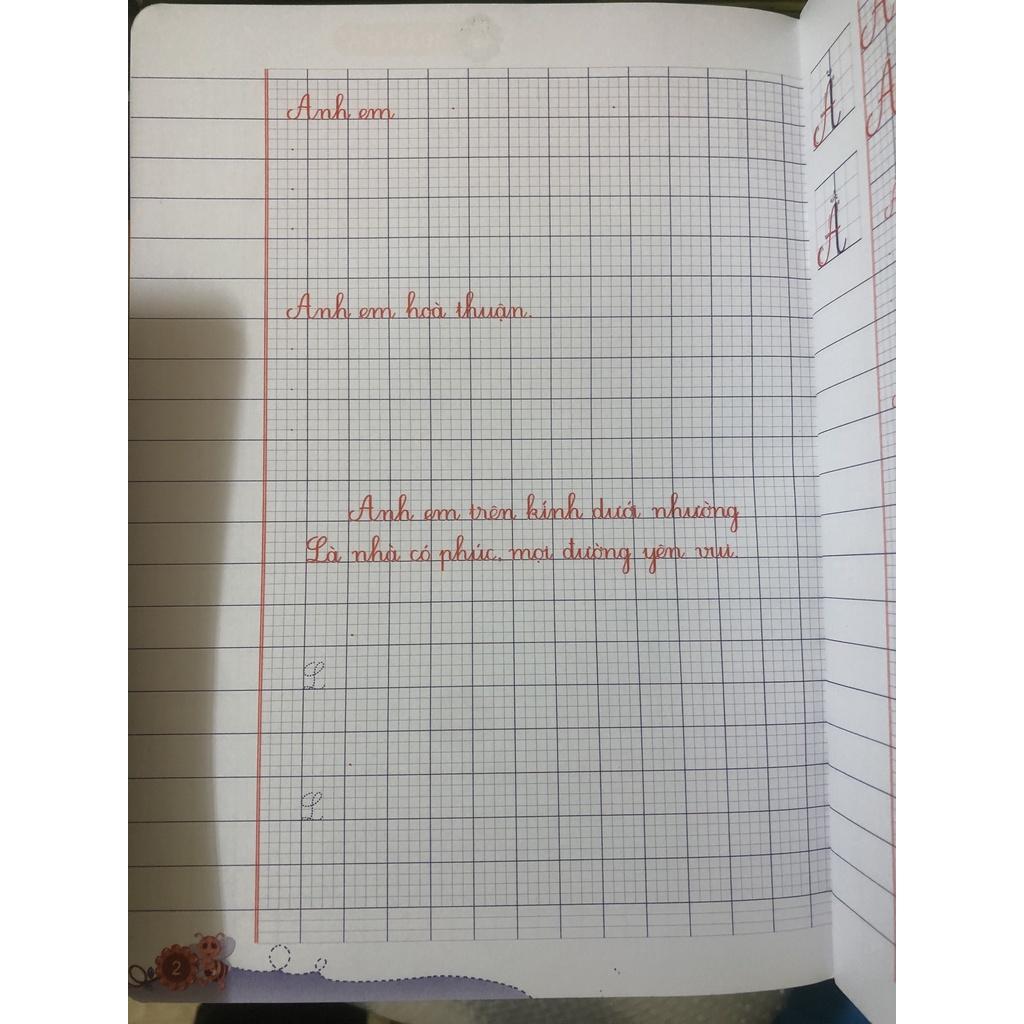 Anh em
Anh em hoà thuận.
Anh em trên kính dưới nhường
Là nhà có phúc, mọi đường yên vui.
L
L
2
Ă
Â